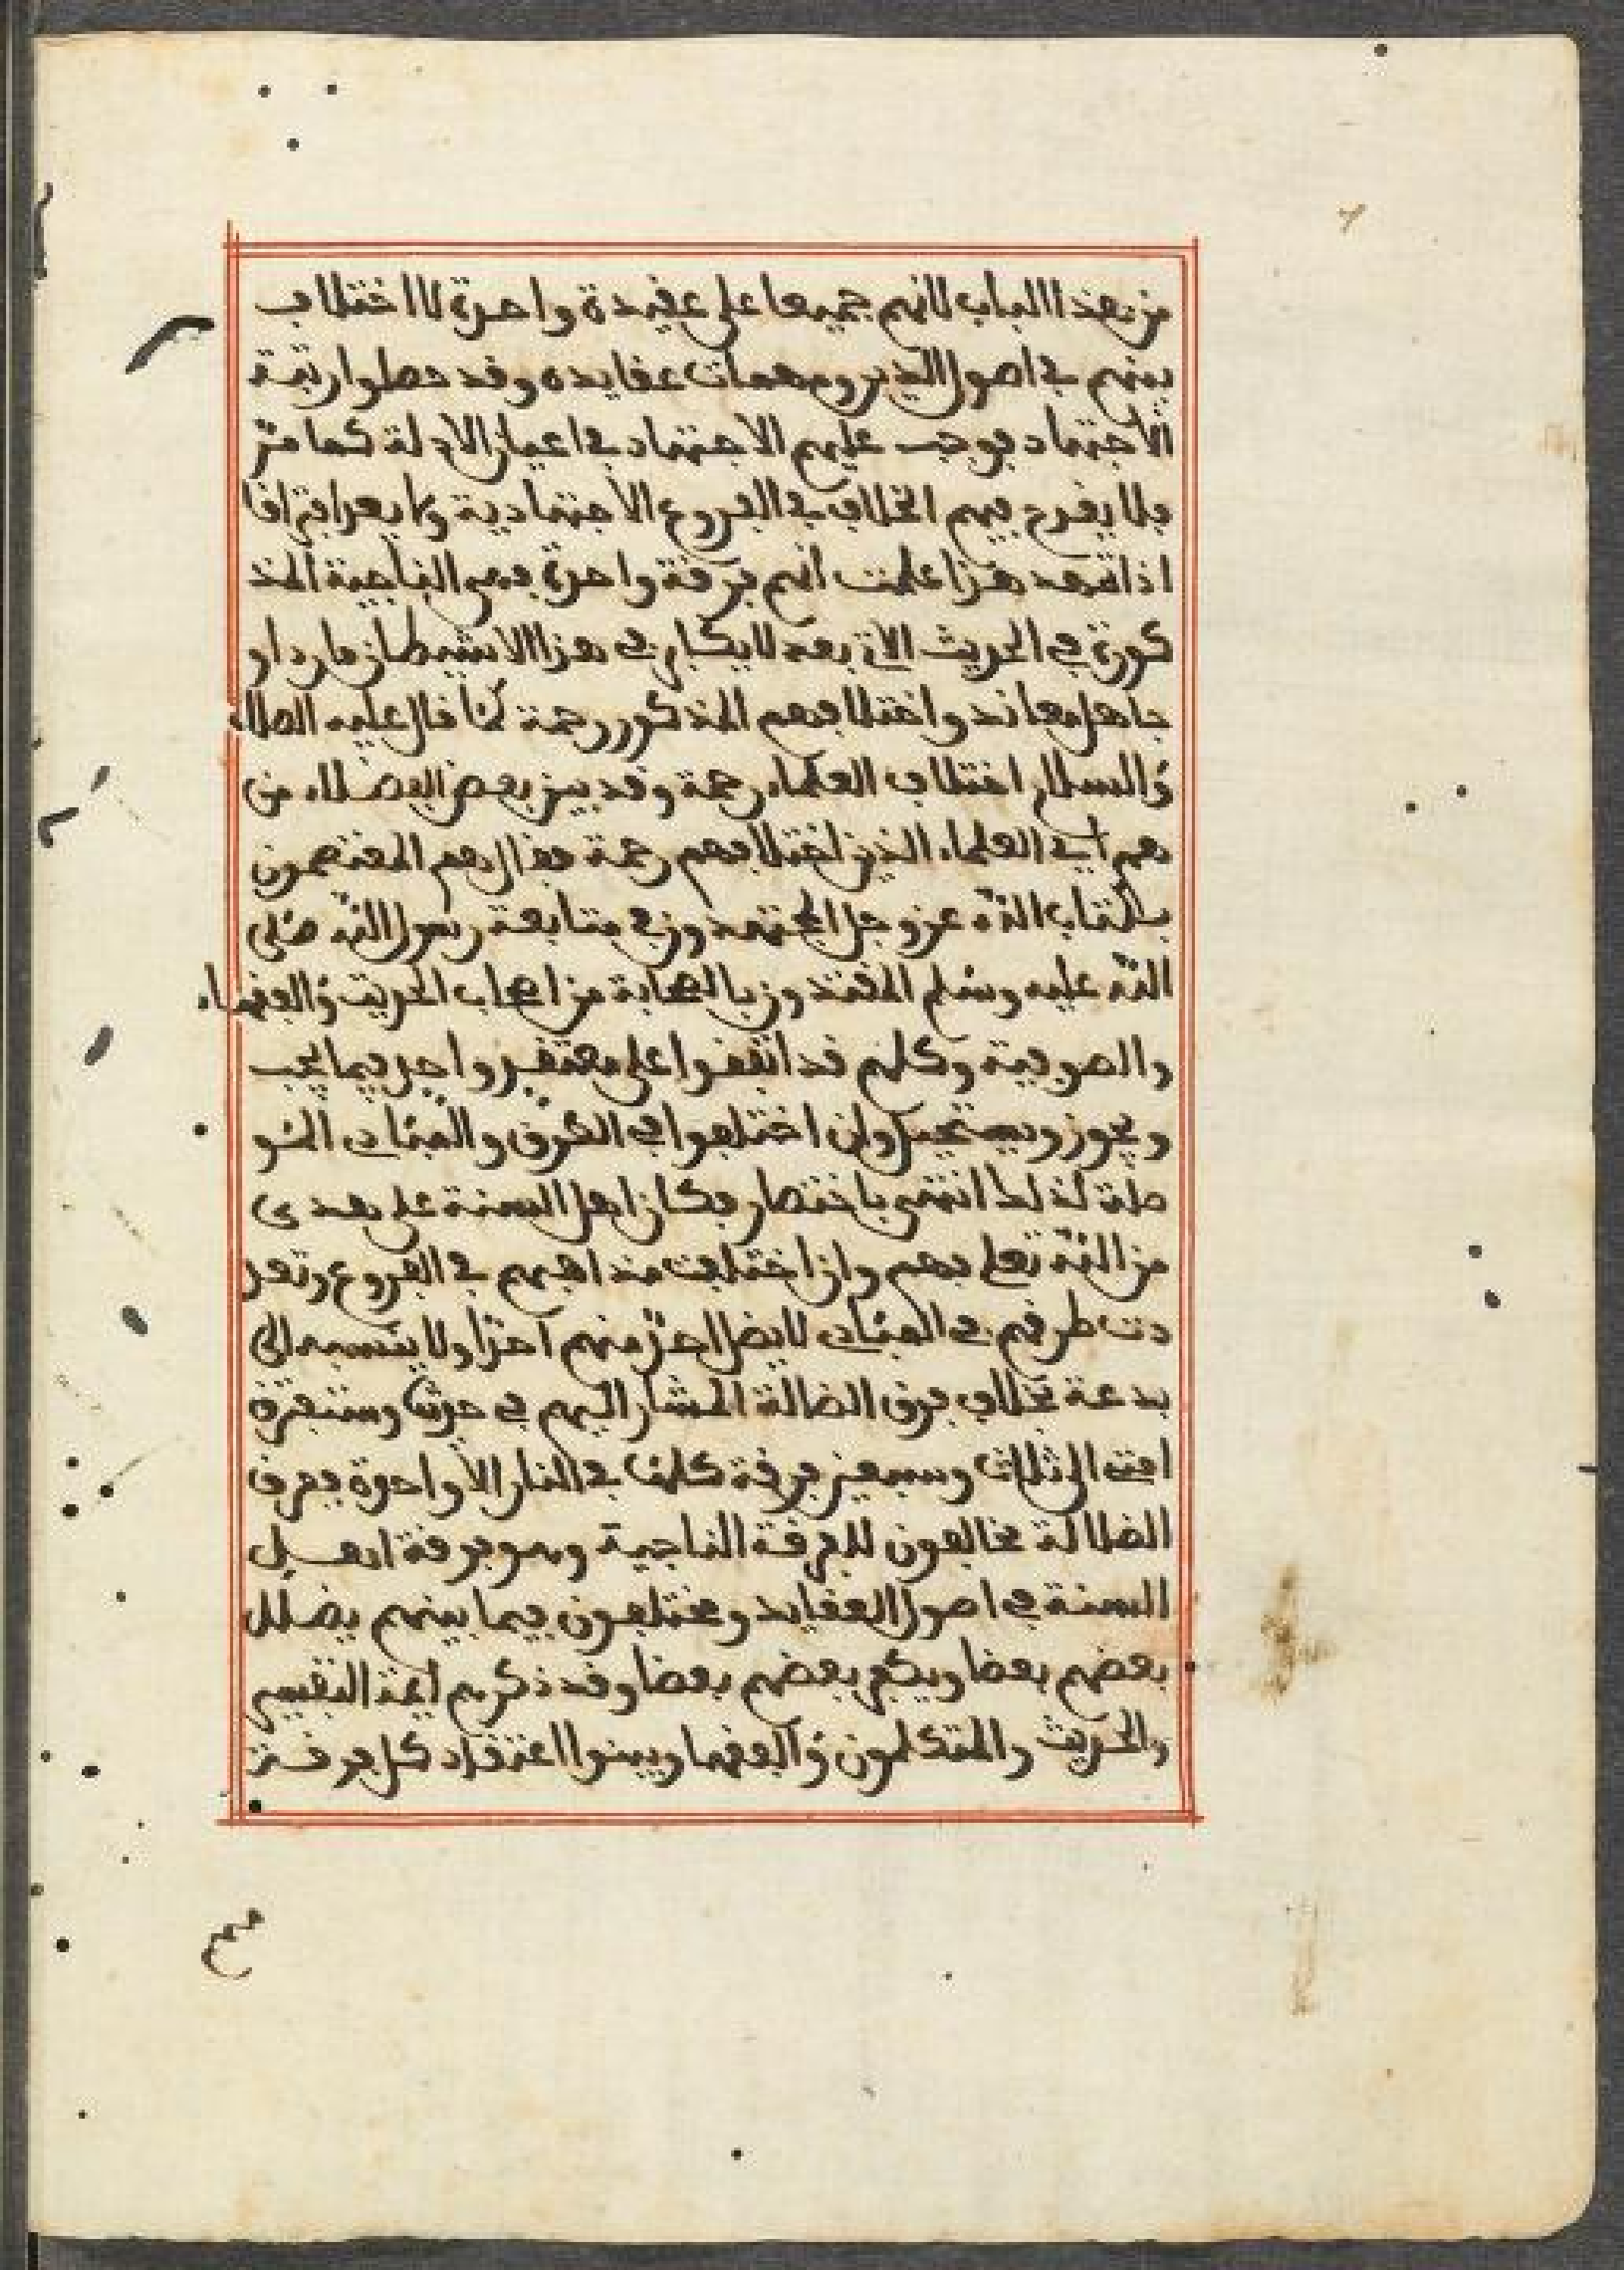 من هذا الباب لانهم جميعا على عقيدة واحدة لا اختلاف
بينهم في اصول الدين ومهمات عقايده وقد حصلوا رتبة
الاجتهاد فوجب عليهم الاجتهاد في اعيان الادلة كما مرّ
فلا يقدح فيهم الخلاف في الفروع الاجتهادية ولا يعد افتراقا
اذا تمهد هذا علمت أنهم فرقة واحدة فهى الناجية المذ
كورة في الحديث الاتي بعد لا يكابر في هذا الا شيطان مارد او
جاهل معاند واختلافهم المذكور رحمة كما قال عليه الصلاة
والسلام اختلاف العلماء رحمة وقد بين بعض الفضلاء من
هم اي العلماء الذين اختلافهم رحمة فقال هم المعتصمون
بكتاب الله عز وجل المجتهدون في متابعة رسول الله صلى
الله عليه وسلم المقتدون بالصحابة من اصحاب الحديث والفقهاء
والصوفية وكلهم قد اتفقوا على معتقد واحد فيما يجب
ويجوز ويستحيل وان اختلفوا في الطرق والمبادي المو
صلة لذلك انتهى باختصار فكان اهل السنة على هدى
من الله تعلى فهم وان اختلفت مذاهبهم في الفروع وتعد
دت طرقهم في المبادي لا يضل احد منهم احدا ولا ينسبه الى
بدعة بخلاف فرق الضالة المشار اليهم في حديث وستفترق
امتي الى ثلاث وسبعين فرقة كلها في النار الا واحدة ففرق
الضلالة مخالفون للفرقة الناجية وهو فرقة اهل
السنة في اصول العقايد ومختلفون فيما بينهم يضلل
بعضهم بعضا ويكفر بعضهم بعضا وقد ذكرهم ايمة التفسير
والحديث والمتكلمون والفقها وبينوا اعتقاد كل فرقة